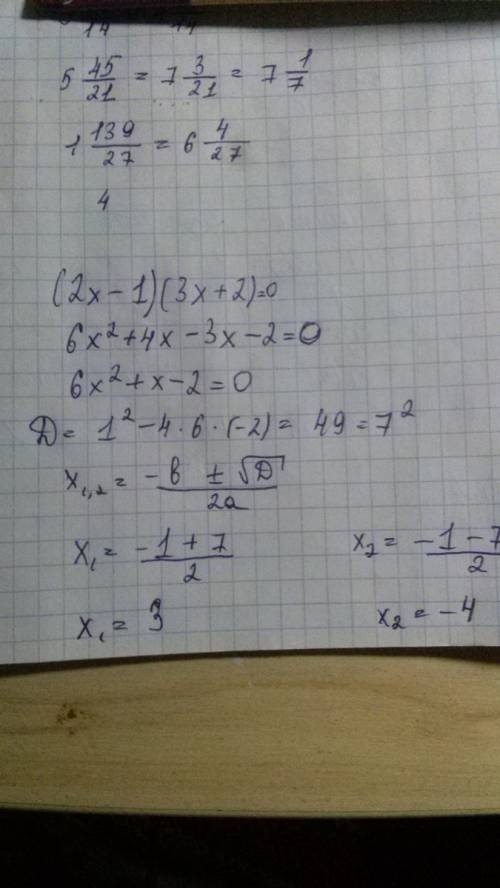 14 14
5 45/21 = 7 3/21 = 7 1/7
1 139/27 = 6 4/27
4
(2x-1)(3x+2)=0
6x²+4x-3x-2=0
6x²+x-2=0
D= 1²-4·6·(-2)= 49=7²
x₁,₂= -b ±√D/2a
x₁= -1+7/2 x₂= -1-7/2
x₁= 3 x₂= -4